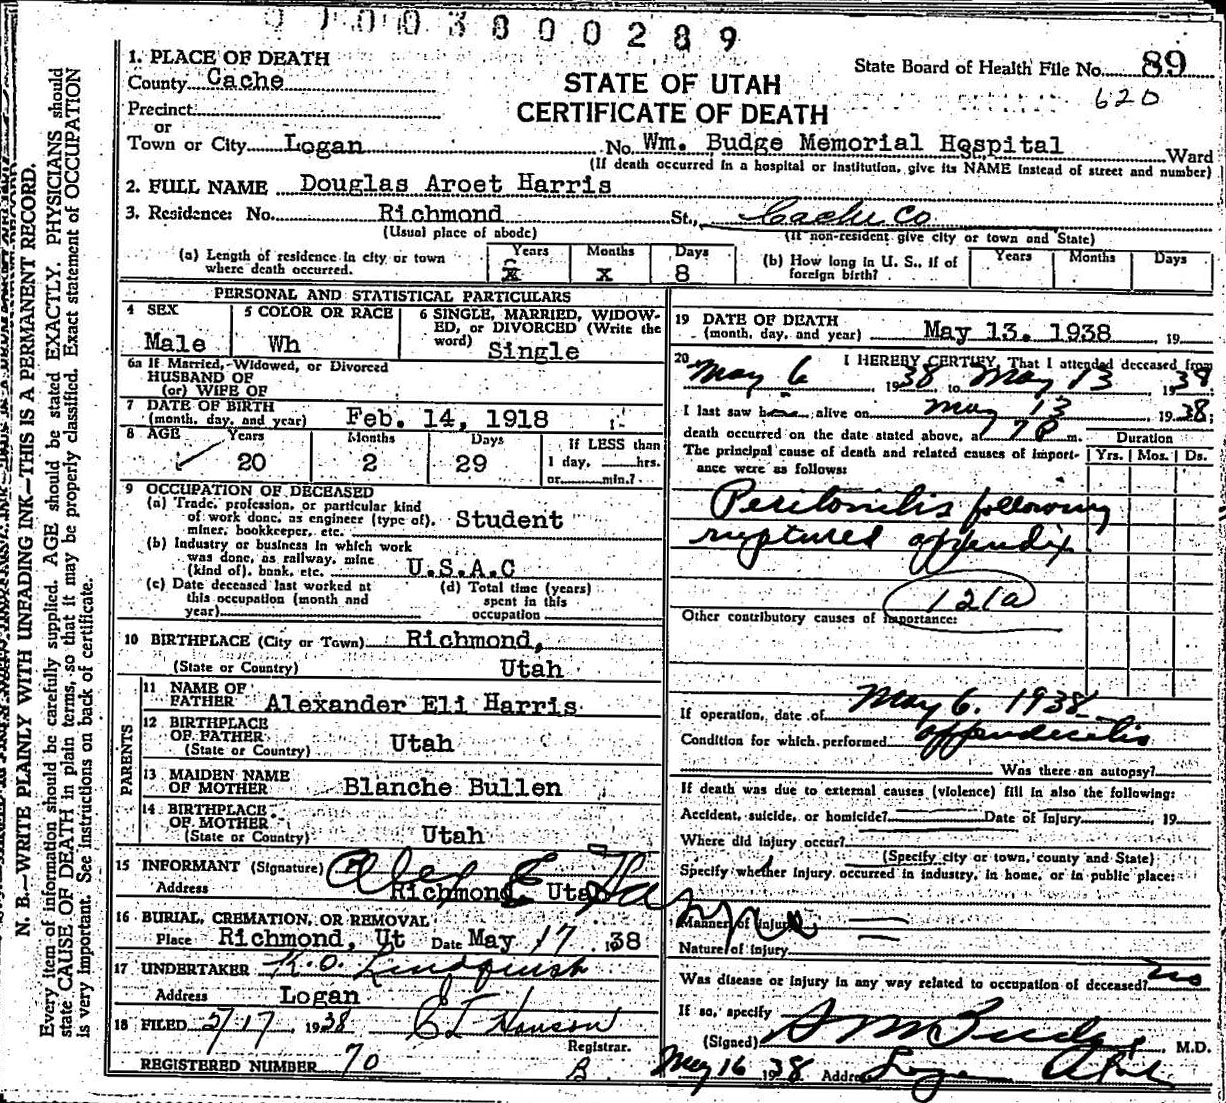 003800289
State Board of Health File No. 89
620
STATE OF UTAH
CERTIFICATE OF DEATH
1. PLACE OF DEATH
County Cache
Precinct
or
Town or City Logan No. Wm. Budge Memorial Hospital St., Ward
(If death occurred in a hospital or institution, give its NAME instead of street and number)
2. FULL NAME Douglas Aroet Harris
3. Residence: No. Richmond St., Cache Co
(Usual place of abode) (If non-resident give city or town and State)
(a) Length of residence in city or town where death occurred. Years x Months x Days 8
(b) How long in U. S., if of foreign birth? Years Months Days
PERSONAL AND STATISTICAL PARTICULARS
4 SEX Male
5 COLOR OR RACE Wh
6 SINGLE, MARRIED, WIDOWED, or DIVORCED (Write the word) Single
6a If Married, Widowed, or Divorced
HUSBAND OF
(or) WIFE OF
7 DATE OF BIRTH
(month, day, and year) Feb. 14, 1918
8 AGE Years 20 Months 2 Days 29 If LESS than 1 day, hrs. or min.?
9 OCCUPATION OF DECEASED
(a) Trade, profession, or particular kind
of work done, as engineer (type of), Student
miner, bookkeeper, etc.
(b) Industry or business in which work
was done, as railway, mine
(kind of), bank, etc. U.S.A.C
(c) Date deceased last worked at this occupation (month and year)
(d) Total time (years) spent in this occupation
10 BIRTHPLACE (City or Town) Richmond,
(State or Country) Utah
PARENTS
11 NAME OF FATHER Alexander Eli Harris
12 BIRTHPLACE OF FATHER
(State or Country) Utah
13 MAIDEN NAME OF MOTHER Blanche Bullen
14 BIRTHPLACE OF MOTHER
(State or Country) Utah
15 INFORMANT (Signature) Alex E Harris
Address Richmond, Utah
16 BURIAL, CREMATION, OR REMOVAL
Place Richmond, Ut Date May 17 1938
17 UNDERTAKER K.O. Lindquist
Address Logan
18 FILED 5/17 1938 Hanson
Registrar.
REGISTERED NUMBER 70 B.
19 DATE OF DEATH
(month, day, and year) May 13. 1938 19
20 I HEREBY CERTIFY, That I attended deceased from
May 6 1938 to May 13 1938
I last saw h alive on May 13 1938;
death occurred on the date stated above, at 7 P m.
The principal cause of death and related causes of importance were as follows:
Duration
Yrs. Mos. Ds.
Peritonitis following
ruptured appendix
121a
Other contributory causes of importance:
If operation, date of May 6. 1938
Condition for which performed appendicitis
Was there an autopsy?
If death was due to external causes (violence) fill in also the following:
Accident, suicide, or homicide? Date of injury 19
Where did injury occur?
(Specify city or town, county and State)
Specify whether injury occurred in industry, in home, or in public place:
Manner of injury
Nature of injury
Was disease or injury in any way related to occupation of deceased? no
If so, specify
(Signed) S M Budge, M.D.
May 16 1938 Address Logan Utah
N. B.—WRITE PLAINLY WITH UNFADING INK—THIS IS A PERMANENT RECORD.
Every item of information should be carefully supplied. AGE should be stated EXACTLY. PHYSICIANS should
state CAUSE OF DEATH in plain terms, so that it may be properly classified. Exact statement of OCCUPATION
is very important. See instructions on back of certificate.